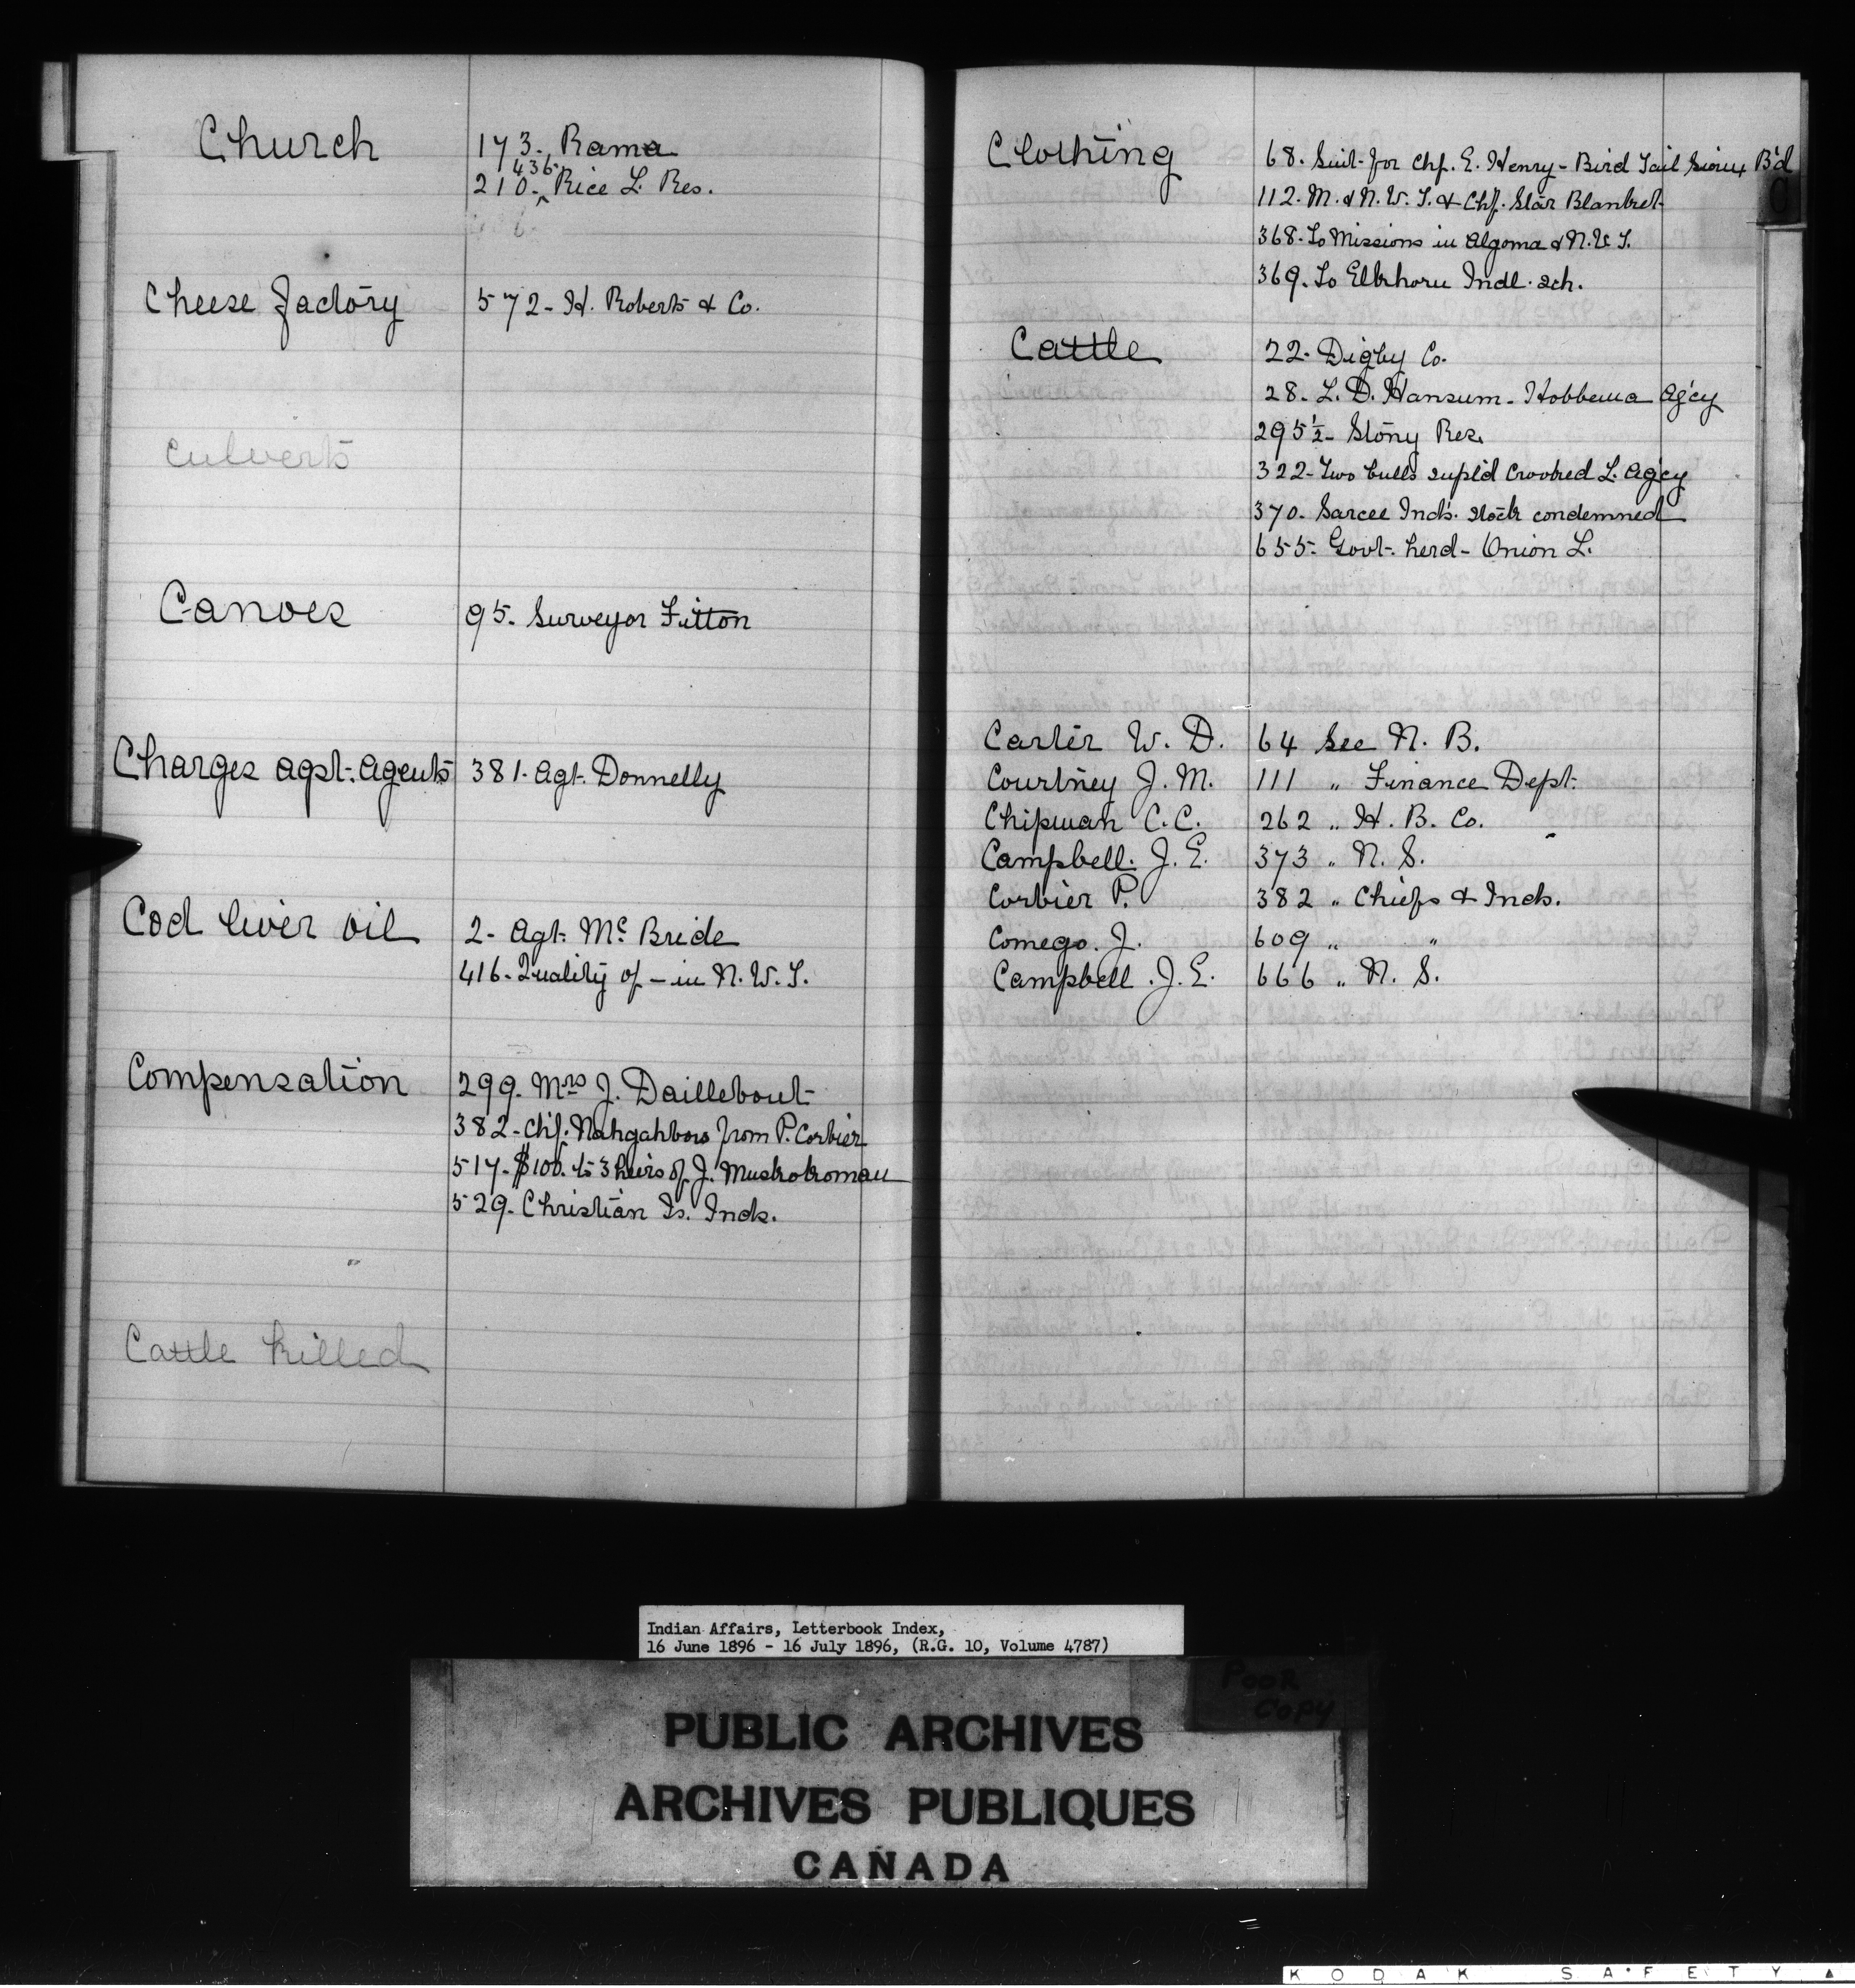 Church 173. Rama
436.
210. ^ Rice L. Res.
Cheese Factory 572- H. Roberts & Co.
Culverts
Canoes 95. Surveyor Fitton
Charges agst. Agents 381. Agt. Donnelly
Cod liver oil 2- Agt. Mc Bride
416- Quality of - in N. W. T.
Compensation 299. Mrs J. Daillebout
382- Chf. Nahgahbow from P. Corbier
517- $100. to 3 heirs of J. Muskokoman
529. Christian Is. Inds.
Cattle killed
Clothing 68. Suit for Chf. E. Henry - Bird Tail Sioux B'd
112. M. & N. W. T. & Chf. Star Blanket
368. To Missions in Algoma & N. W. T.
369. To Elkhorn Indl. sch.
Cattle 22. Digby Co.
28. L. D. Hansum - Hobbema Ag'cy
295½- Stony Res.
322- Two bulls supl'd Crooked L. Ag'cy
370. Sarcee Inds. stock condemned
655- Govt. herd - Onion L.
Carter W. D. 64 See N. B.
Courtney J. M. 111 " Finance Dept.
Chipman C. C. 262 " H. B. Co.
Campbell. J. E. 373 " N. S.
Corbier P. 382 " Chiefs & Inds.
Comego. J. 609 " "
Campbell. J. E. 666 " N. S.
C
Indian Affairs, Letterbook Index,
16 June 1896 - 16 July 1896, (R.G. 10, Volume 4787)
POOR
COPY
PUBLIC ARCHIVES
ARCHIVES PUBLIQUES
CANADA
KODAK SAFETY